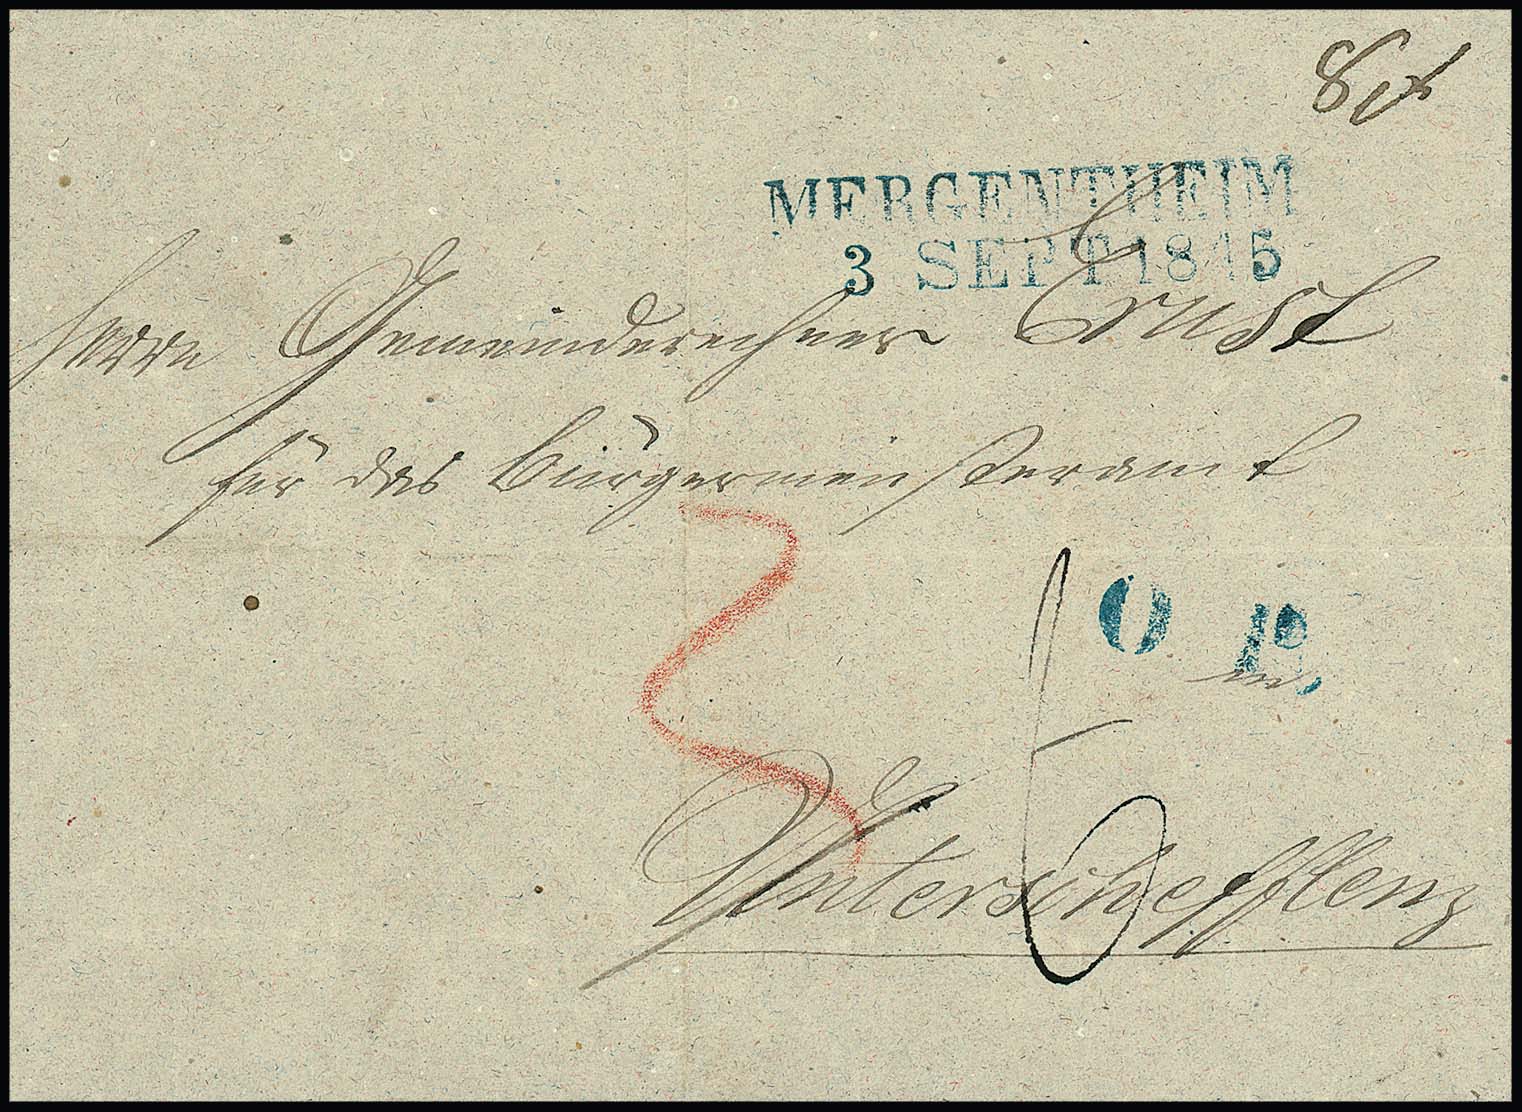 8
MERGENTHEIM
3 SEPT 1845
Herrn Gemeinderechner Ernst
für das Bürgermeisteramt
3
6
O P.
in
Unterschefflenz